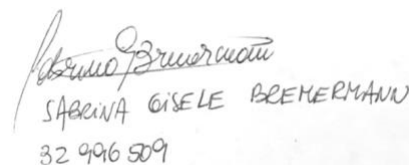 Sabrina Bremermann
SABRINA GISELE BREMERMANN
32 996 509